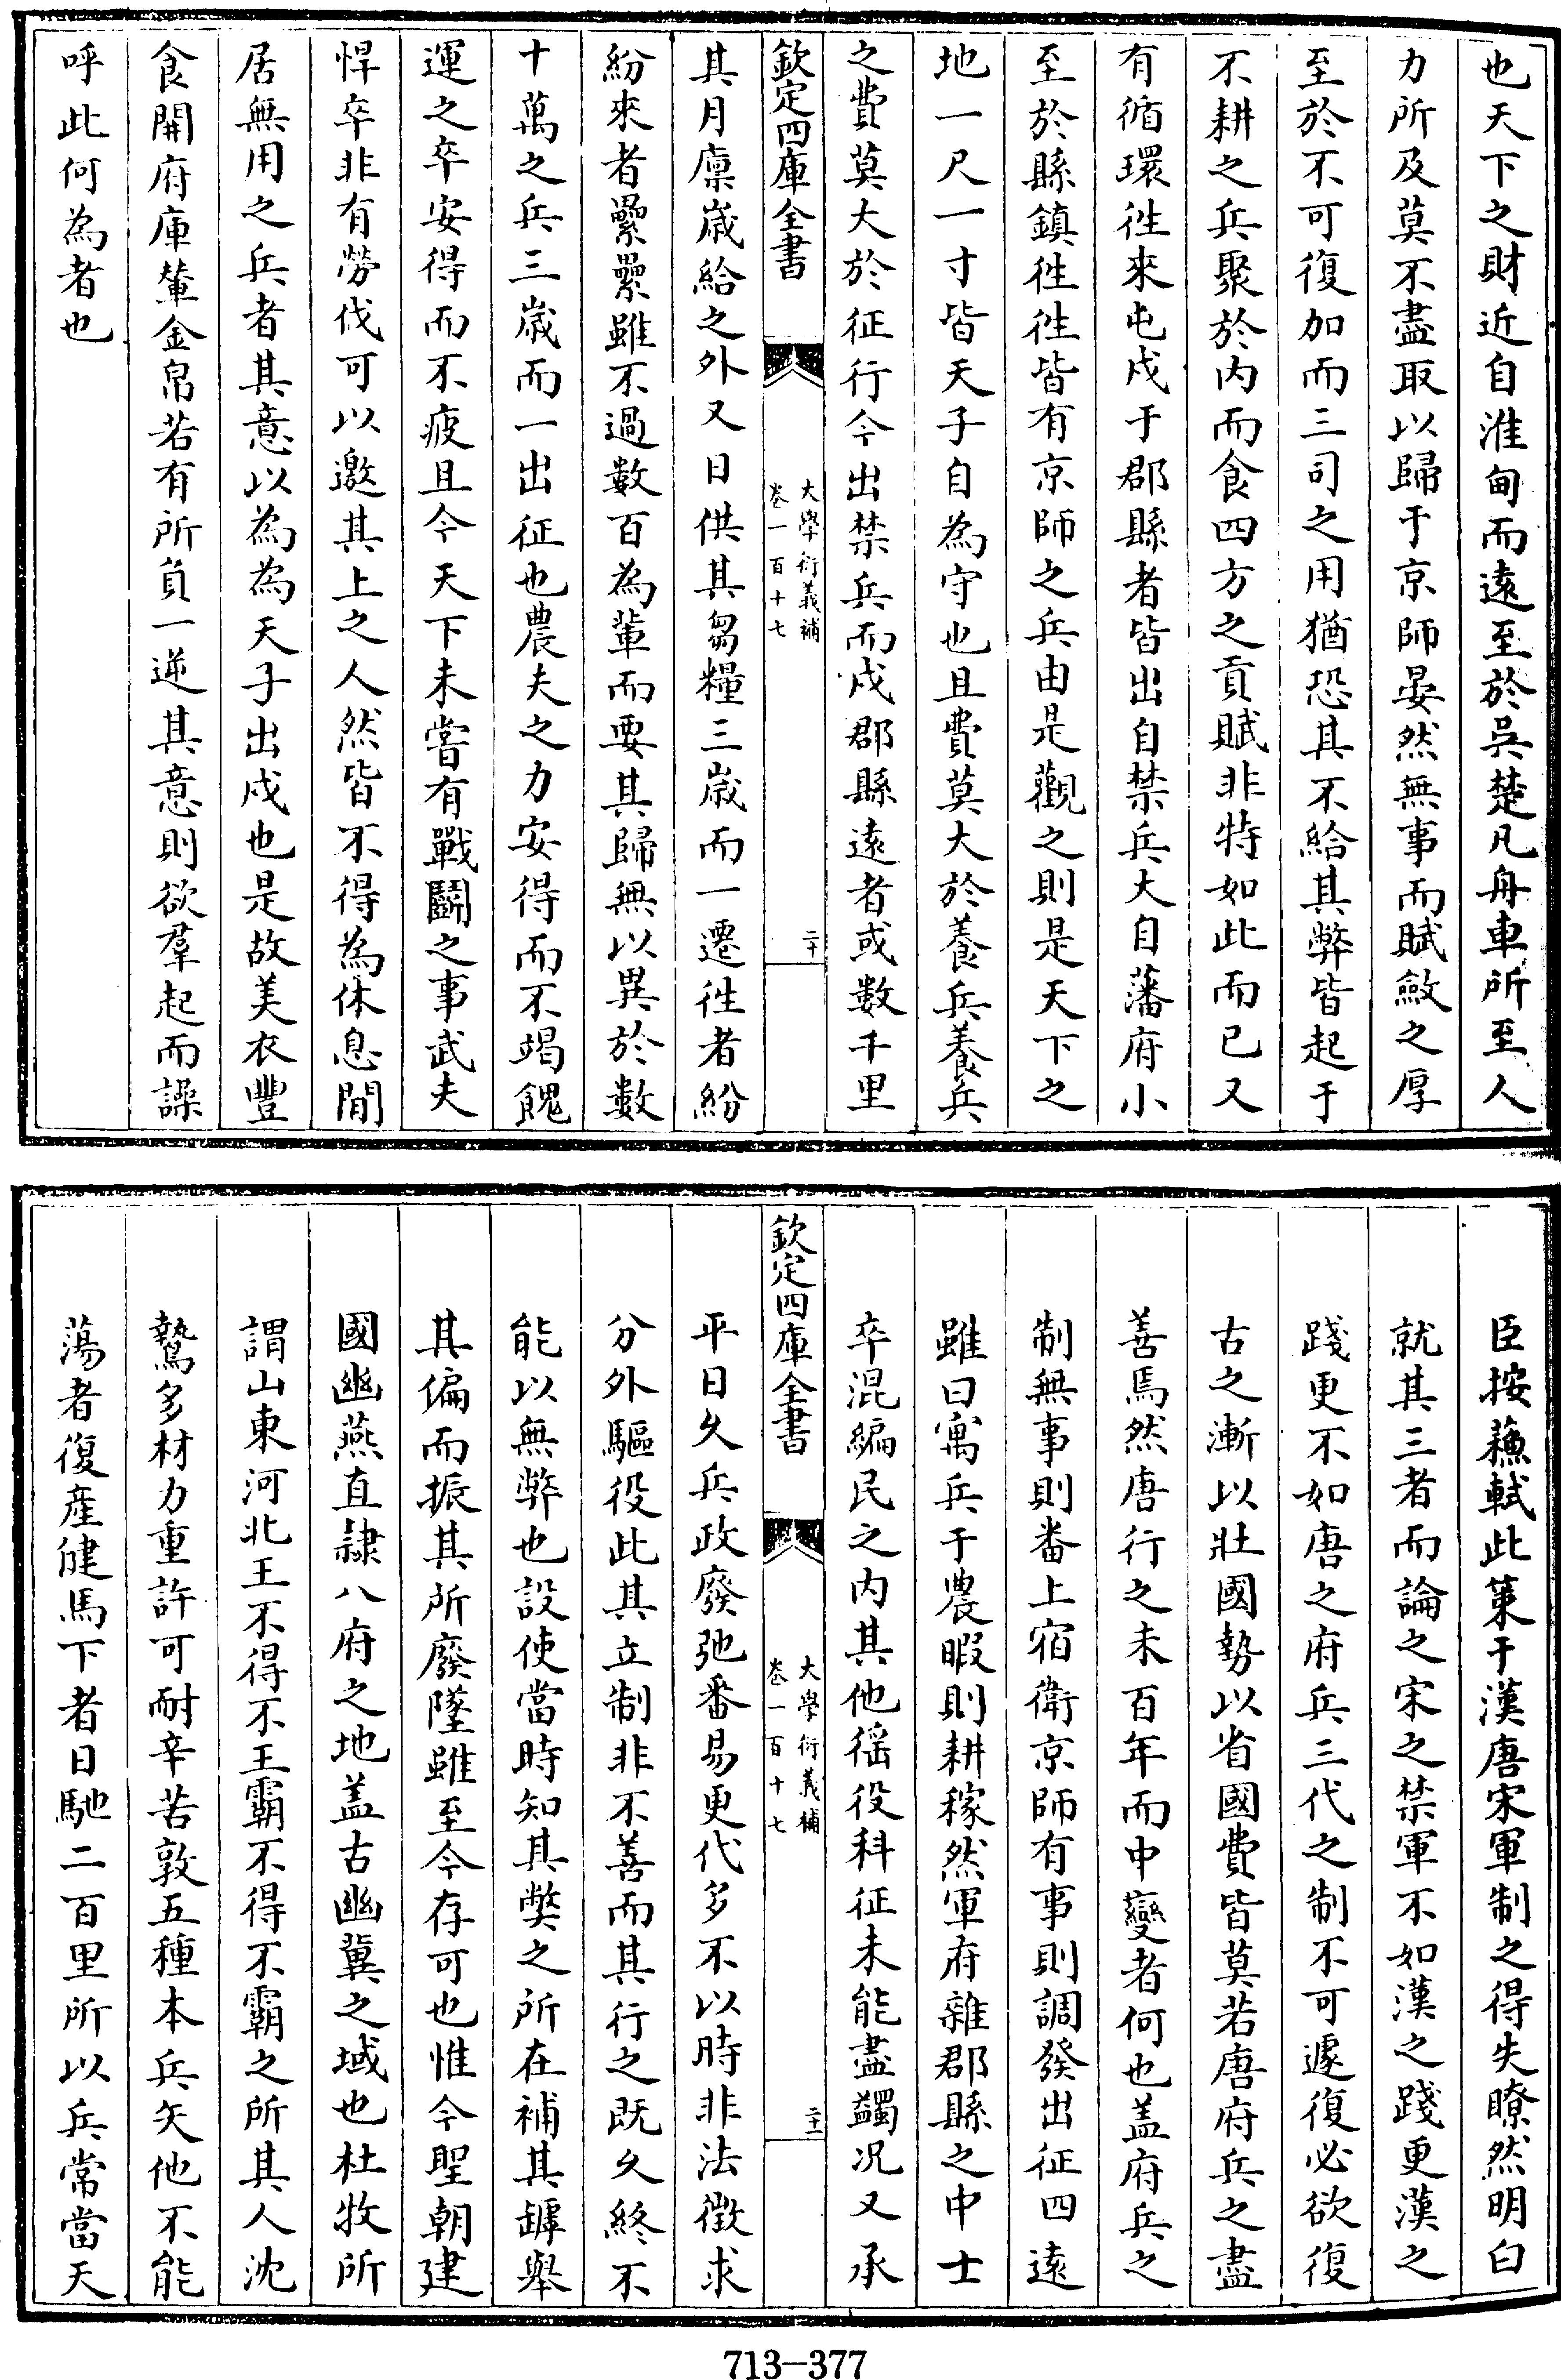 也天下之財近自淮甸而遠至於吳楚凡舟車所至人
力所及莫不盡取以歸于京師晏然無事而賦斂之厚
至於不可復加而三司之用猶恐其不給其弊皆起于
不耕之兵聚於内而食四方之貢賦非特如此而已又
有循環徃來屯戍于郡縣者皆出自禁兵大自藩府小
至於縣鎮徃徃皆有京師之兵由是觀之則是天下之
地一尺一寸皆天子自為守也且費莫大於養兵養兵
之費莫大於征行今出禁兵而戍郡縣遠者或數千里
欽定四庫全書
大學衍義補
卷一百十七
二十
其月廪嵗給之外又日供其芻糧三嵗而一遷徃者紛
紛來者纍纍雖不過數百為輩而要其歸無以異於數
十萬之兵三嵗而一出征也農夫之力安得而不竭餽
運之卒安得而不疲且今天下未嘗有戰鬭之事武夫
悍卒非有勞伐可以邀其上之人然皆不得為休息閒
居無用之兵者其意以為為天子出戍也是故美衣豐
食開府庫輦金帛若有所負一逆其意則欲羣起而譟
呼此何為者也
臣按蘓軾此䇿于漢唐宋軍制之得失瞭然明白
就其三者而論之宋之禁軍不如漢之踐更漢之
踐更不如唐之府兵三代之制不可遽復必欲復
古之漸以壯國勢以省國費皆莫若唐府兵之盡
善焉然唐行之未百年而中變者何也盖府兵之
制無事則番上宿衛京師有事則調發出征四遠
雖曰寓兵于農暇則耕稼然軍府雜郡縣之中士
卒混編民之内其他徭役科征未能盡蠲况又承
欽定四庫全書
大學衍義補
卷一百十七
二十一
平日久兵政廢弛番易更代多不以時非法徵求
分外驅役此其立制非不善而其行之既久終不
能以無弊也設使當時知其弊之所在補其罅舉
其偏而振其所廢墜雖至今存可也惟今聖朝建
國幽燕直隷八府之地盖古幽冀之域也杜牧所
謂山東河北王不得不王霸不得不霸之所其人沈
鷙多材力重許可耐辛苦敦五種本兵矢他不能
蕩者復産健馬下者日馳二百里所以兵常當天
713-377